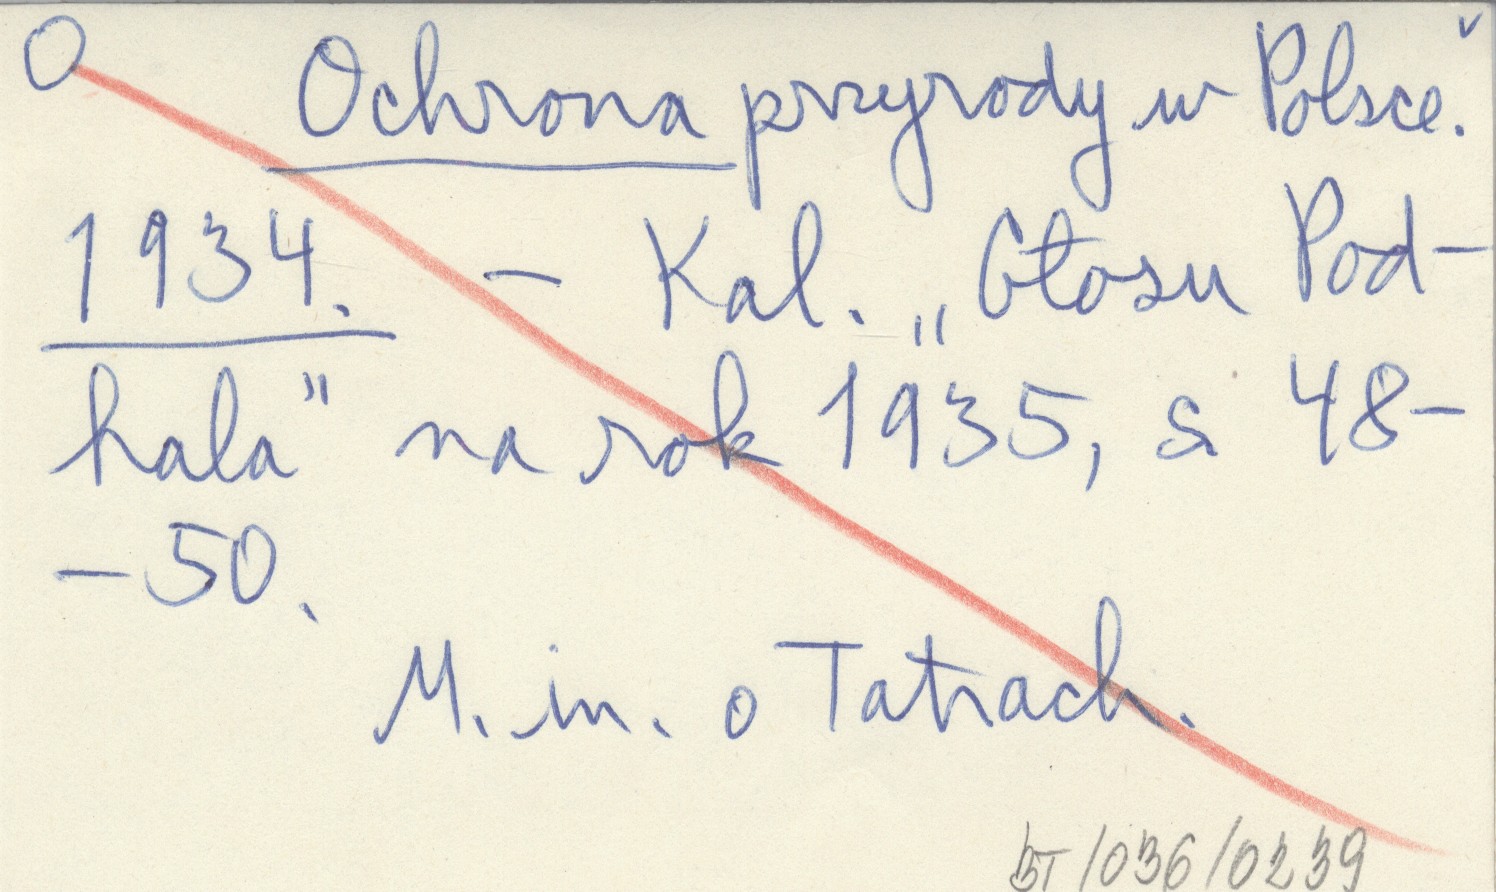 O Ochrona przyrody w Polsce. ˇ
1934. – Kal. „Głosu Pod-
hala" na rok 1935, s 48-
-50.
M. in. o Tatrach.
BT/036/0239